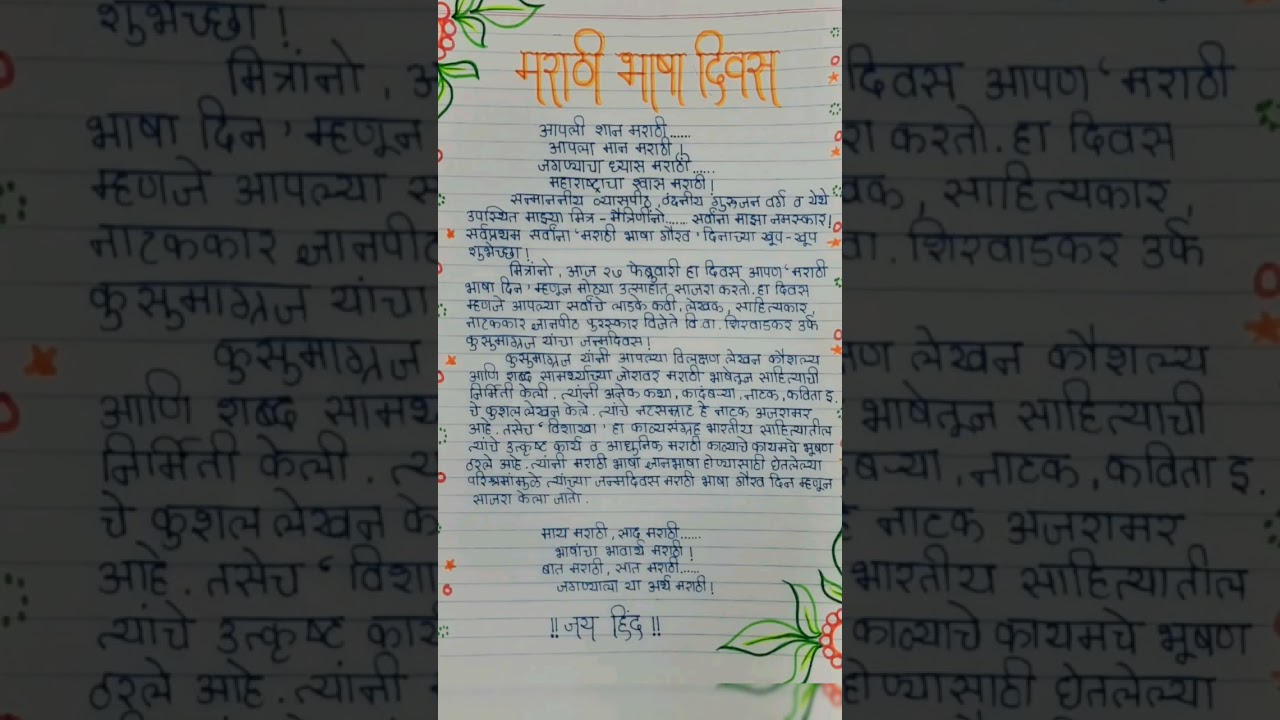 मराठी भाषा दिवस
आपली शान मराठी......
आपला मान मराठी !
जगण्याचा ध्यास मराठी......
महाराष्ट्राचा श्वास मराठी !
सन्माननीय व्यासपीठ, वंदनीय गुरुजन वर्ग व येथे
उपस्थित माझ्या मित्र - मैत्रिणींनो...... सर्वांना माझा नमस्कार!
सर्वप्रथम सर्वांना 'मराठी भाषा गौरव' दिनाच्या खूप-खूप
शुभेच्छा !
मित्रांनो, आज २७ फेब्रुवारी हा दिवस आपण 'मराठी
भाषा दिन' म्हणून मोठ्या उत्साहात साजरा करतो. हा दिवस
म्हणजे आपल्या सर्वांचे लाडके कवी, लेखक, साहित्यकार,
नाटककार ज्ञानपीठ पुरस्कार विजेते वि.वा. शिरवाडकर उर्फ
कुसुमाग्रज यांचा जन्मदिवस!
कुसुमाग्रज यांनी आपल्या विलक्षण लेखन कौशल्य
आणि शब्द सामर्थ्याच्या जोरावर मराठी भाषेतून साहित्याची
निर्मिती केली. त्यांनी अनेक कथा, कादंबऱ्या, नाटक, कविता इ.
चे कुशल लेखन केले. त्यांचे नटसम्राट हे नाटक अजरामर
आहे. तसेच 'विशाखा' हा काव्यसंग्रह भारतीय साहित्यातील
त्यांचे उत्कृष्ट कार्य व आधुनिक मराठी काव्याचे कायमचे भूषण
ठरले आहे. त्यांनी मराठी भाषा ज्ञानभाषा होण्यासाठी घेतलेल्या
परिश्रमांमुळे त्यांच्या जन्मदिवस मराठी भाषा गौरव दिन म्हणून
साजरा केला जातो.
माय मराठी, साद मराठी......
भाषांचा भावार्थ मराठी !
बात मराठी, सात मराठी......
जगण्याला या अर्थ मराठी!
!! जय हिंद !!